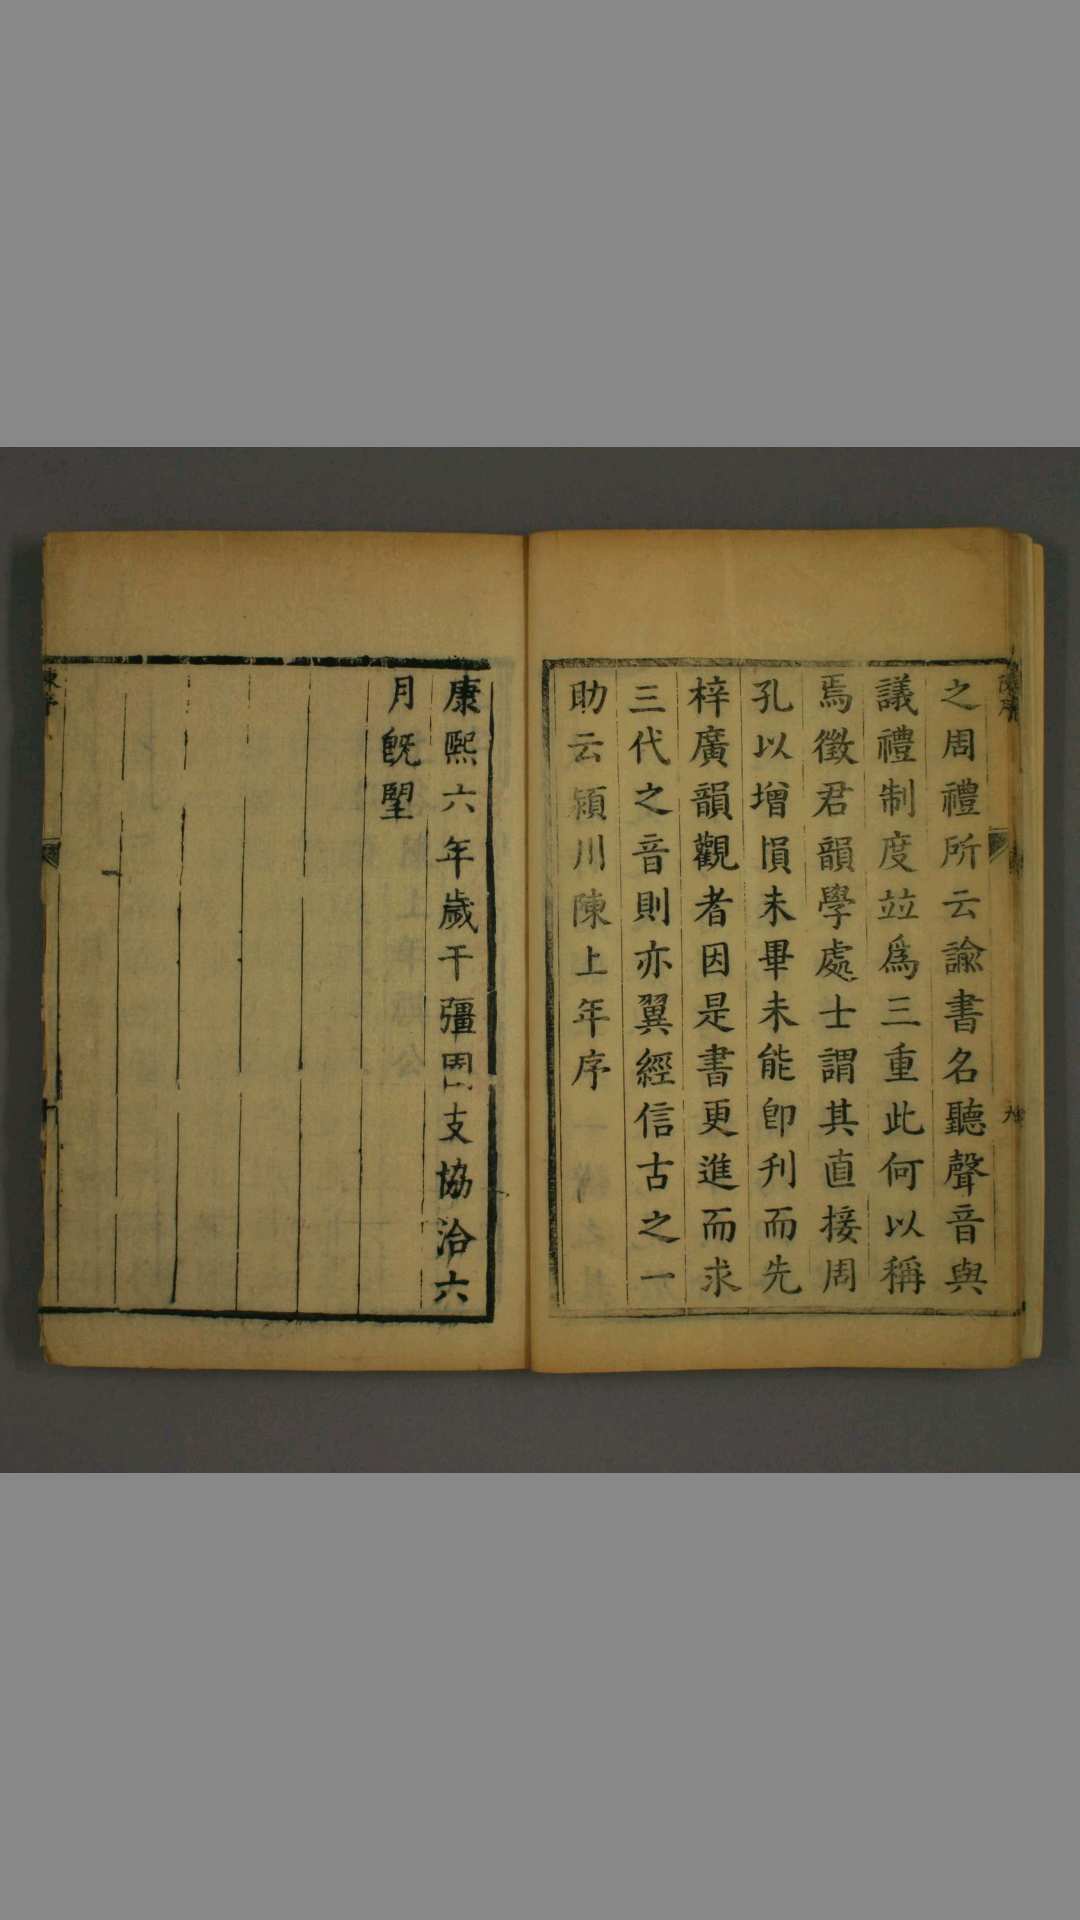 之周禮所云諭書名聽聲音與
議禮制度竝爲三重此何以稱
焉徵君韻學處士謂其直接周
孔以增損未畢未能卽刊而先
梓廣韻觀者因是書更進而求
三代之音則亦翼經信古之一
助云潁川陳上年序
康熙六年歲干彊圉支協洽六
月旣朢